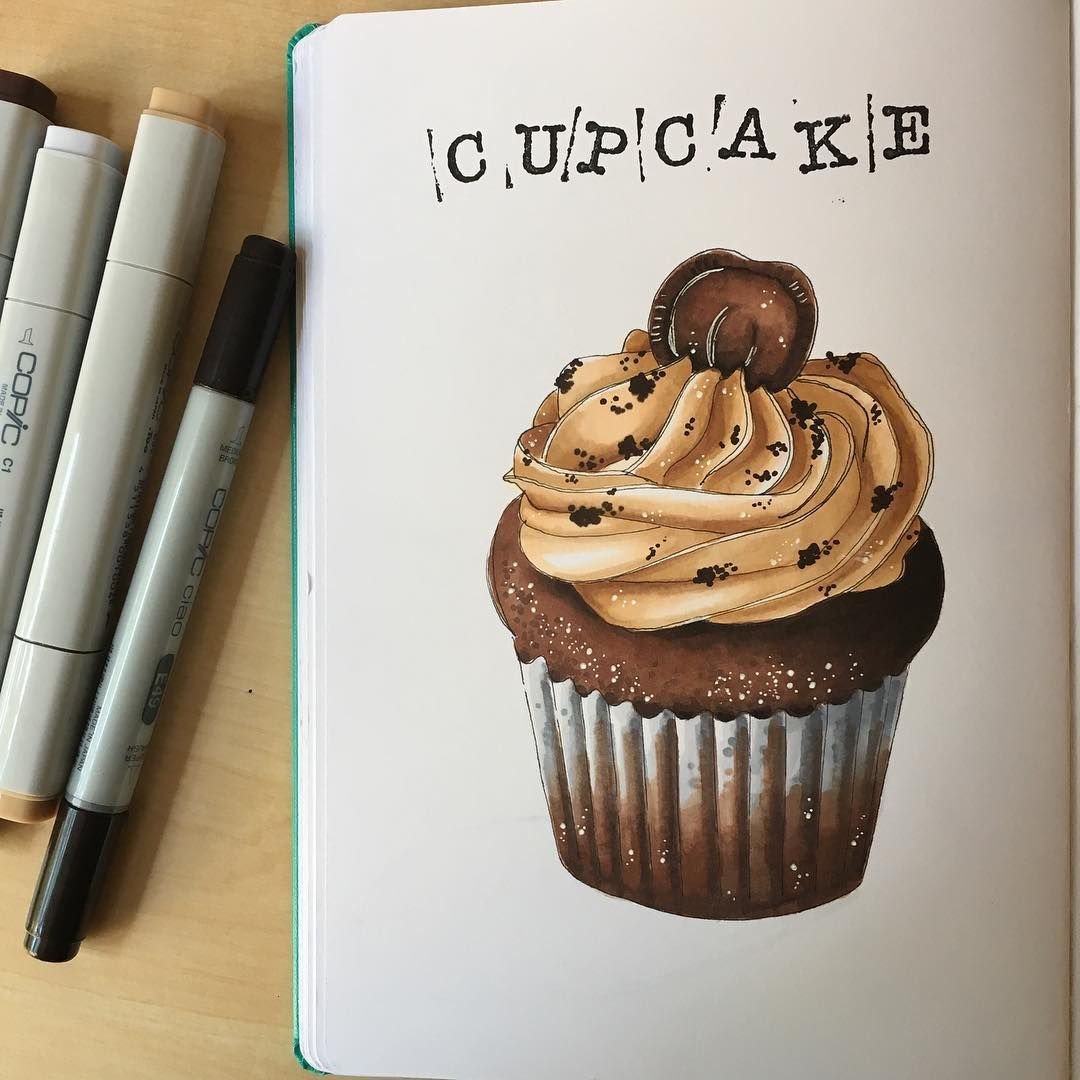 CUPCAKE
COPIC
C1
COPIC ciao
E49
MADE IN JAPAN